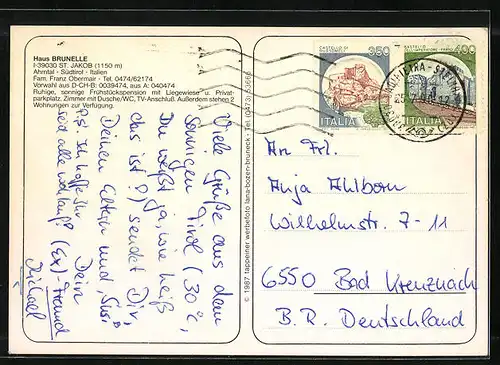 Haus BRUNELLE
I-39030 ST. JAKOB (1150 m)
Ahrntal - Südtirol - Italien
Fam. Franz Obermair - Tel. 0474/62174
Vorwahl aus D-CH-B: 0039474, aus A: 040474
Ruhige, sonnige Frühstückspension mit Liegewiese u. Privat-
parkplatz. Zimmer mit Dusche/WC, TV-Anschluß. Außerdem stehen 2
Wohnungen zur Verfügung.
Viele Grüße aus dem
sonnigen Tirol (30°C,
Du weißt ja, wie heiß
das ist?) sendet Dir,
Deinen Eltern und Susi,
Dein
(Ex) Freund
Michael
PS: Ich hoffe Ihr
seid alle wohlauf!
© 1987 tappeiner werbefoto lana-bozen-bruneck - Tel. (0473) 53666
350
ITALIA
CASTELLO
400
ITALIA
An Frl.
Anja Ahlborn
Wilhelmstr. 7-11
6550 Bad Kreuznach
B.R. Deutschland